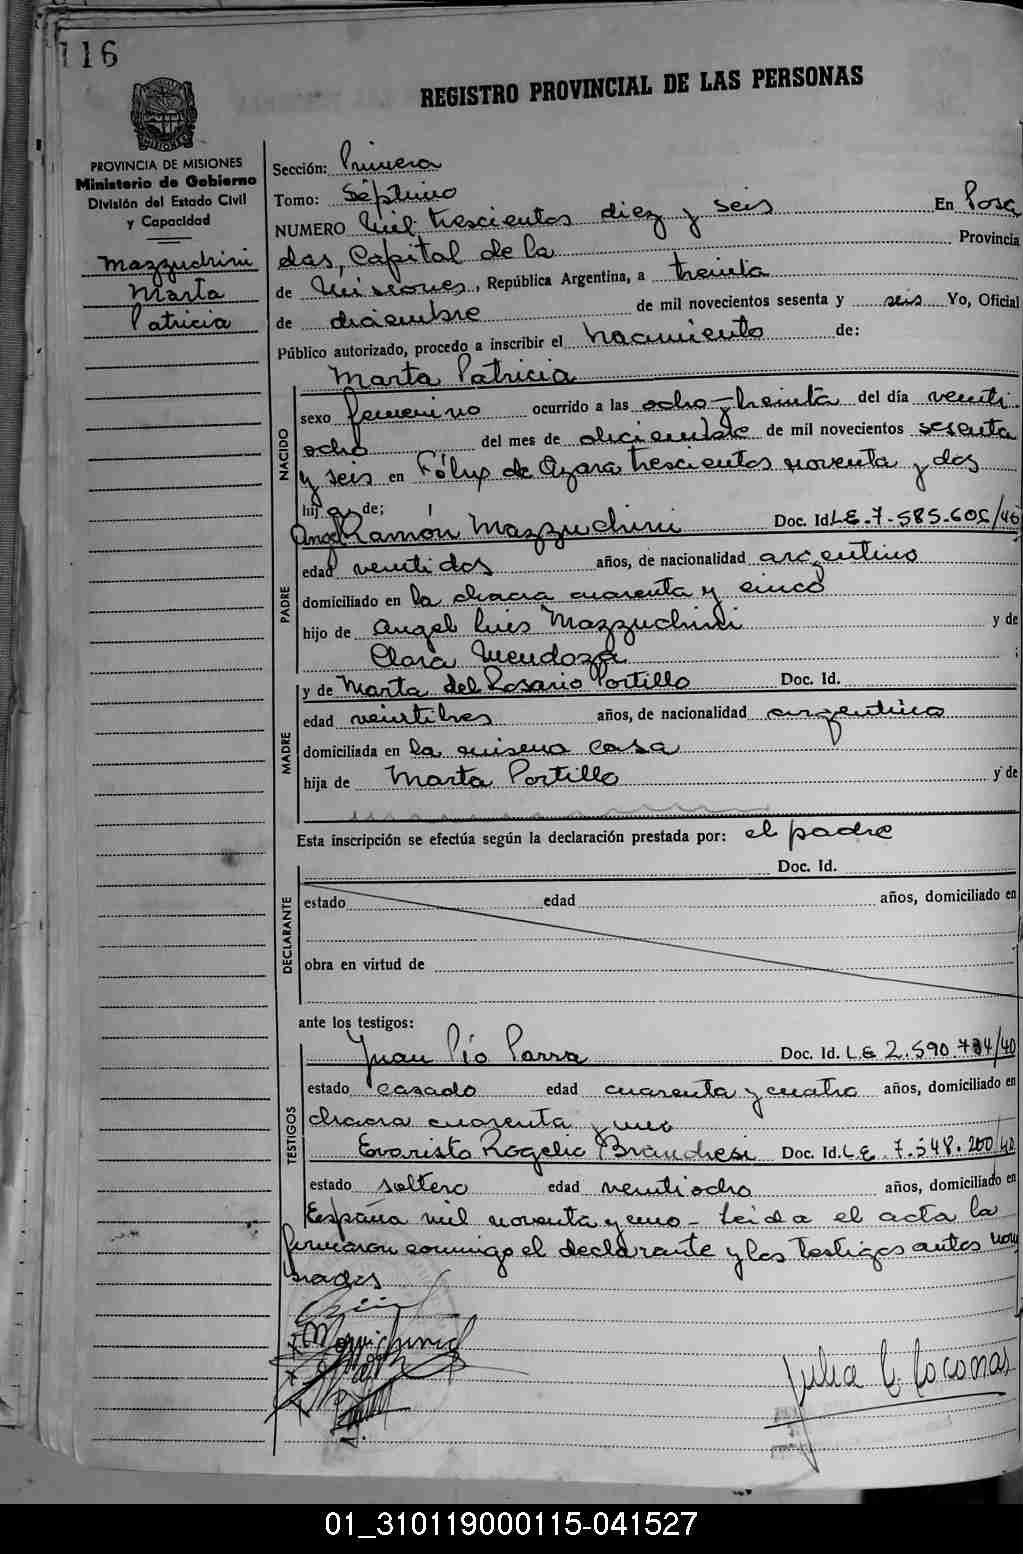 116
REGISTRO PROVINCIAL DE LAS PERSONAS
PROVINCIA DE MISIONES
Ministerio de Gobierno
División del Estado Civil
y Capacidad
Mazzuchini
Marta
Patricia
Sección: Primera
Tomo: Séptimo
NUMERO Mil trescientos diez y seis En Posa
das, Capital de la Provincia
de Misiones, República Argentina, a treinta
de diciembre de mil novecientos sesenta y seis Yo, Oficial
Público autorizado, procedo a inscribir el nacimiento de:
Marta Patricia
NACIDO
sexo femenino ocurrido a las ocho-treinta del día venti
ocho del mes de diciembre de mil novecientos sesenta
y seis en Félix de Azara trescientos noventa y dos
hija de;
Angel Ramón Mazzuchini Doc. Id. L E - 7 - 585.605/40
PADRE
edad ventidos años, de nacionalidad argentino
domiciliado en la chacra cuarenta y cinco
hijo de Angel Luis Mazzuchini y de
Clara Mendoza ;
y de Marta del Rosario Portillo Doc. Id.
MADRE
edad veintitres años, de nacionalidad argentina
domiciliada en la misma casa
hija de Marta Portillo y de
Esta inscripción se efectúa según la declaración prestada por: el padre
Doc. Id.
DECLARANTE
estado edad años, domiciliado en
obra en virtud de
ante los testigos:
Juan Pío Parra Doc. Id. L E 2.590.734/40
TESTIGOS
estado casado edad cuarenta y cuatro años, domiciliado en
chacra cuarenta y uno
Evaristo Rogelio Brandresi Doc. Id. L E . 7.548.200/40
estado soltero edad ventiocho años, domiciliado en
España mil noventa y uno - Leida el acta la
firmaron conmigo el declarante y los testigos antes nom
brados
Mazzuchini
Julia E. Coconas
01_310119000115-041527